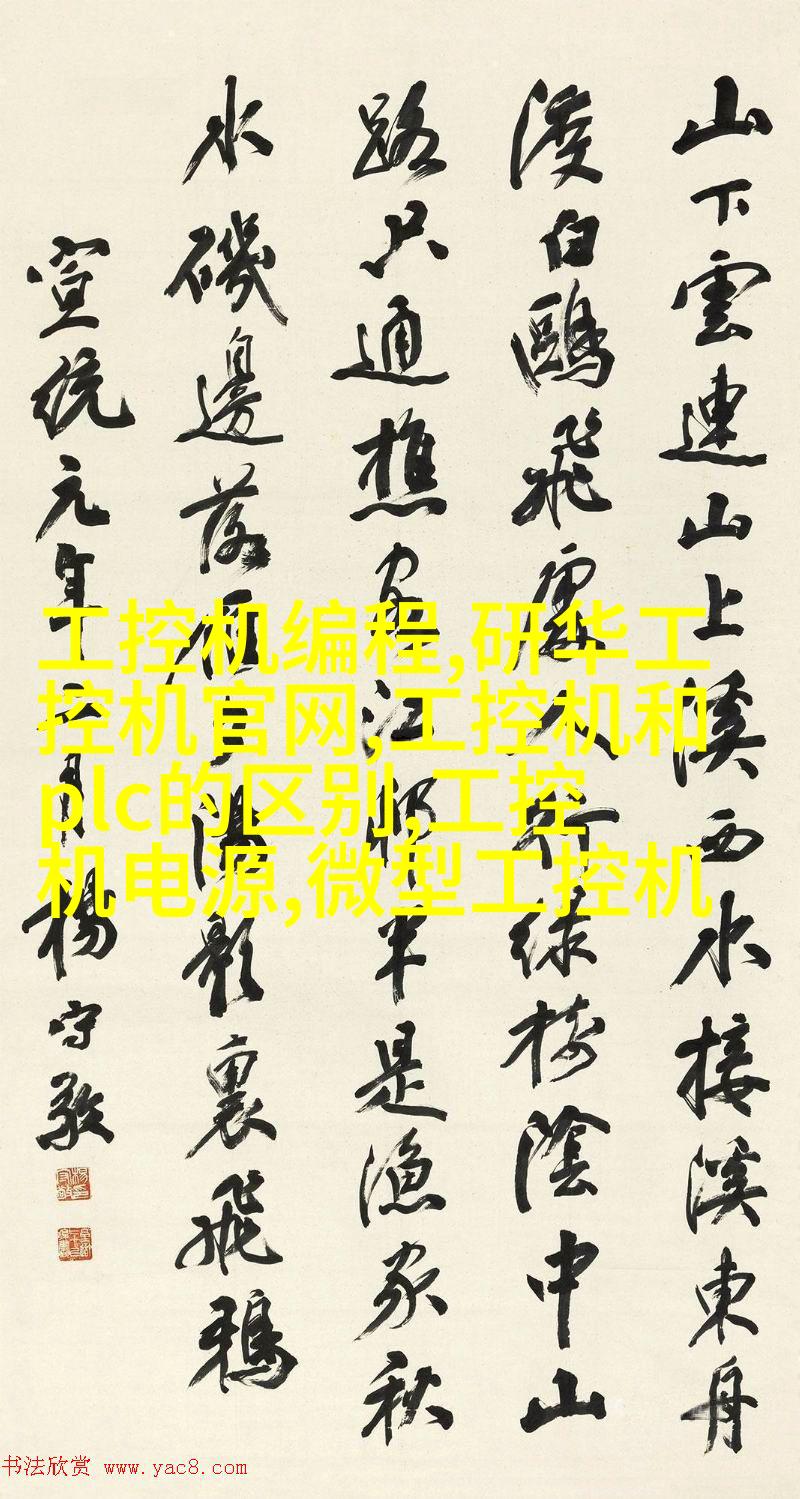 山下雲連山上溪西水接溪東舟
渡白鷗飛處人行綠樹陰中山
路只通樵家江邨半是漁家秋
水磯邊落雁夕陽影裏飛鴉
宣統元年月楊守敬
工控机编程,研华工
控机官网,工控机和
plc的区别,工控
机电源,微型工控机
书法欣赏 www.yac8.com